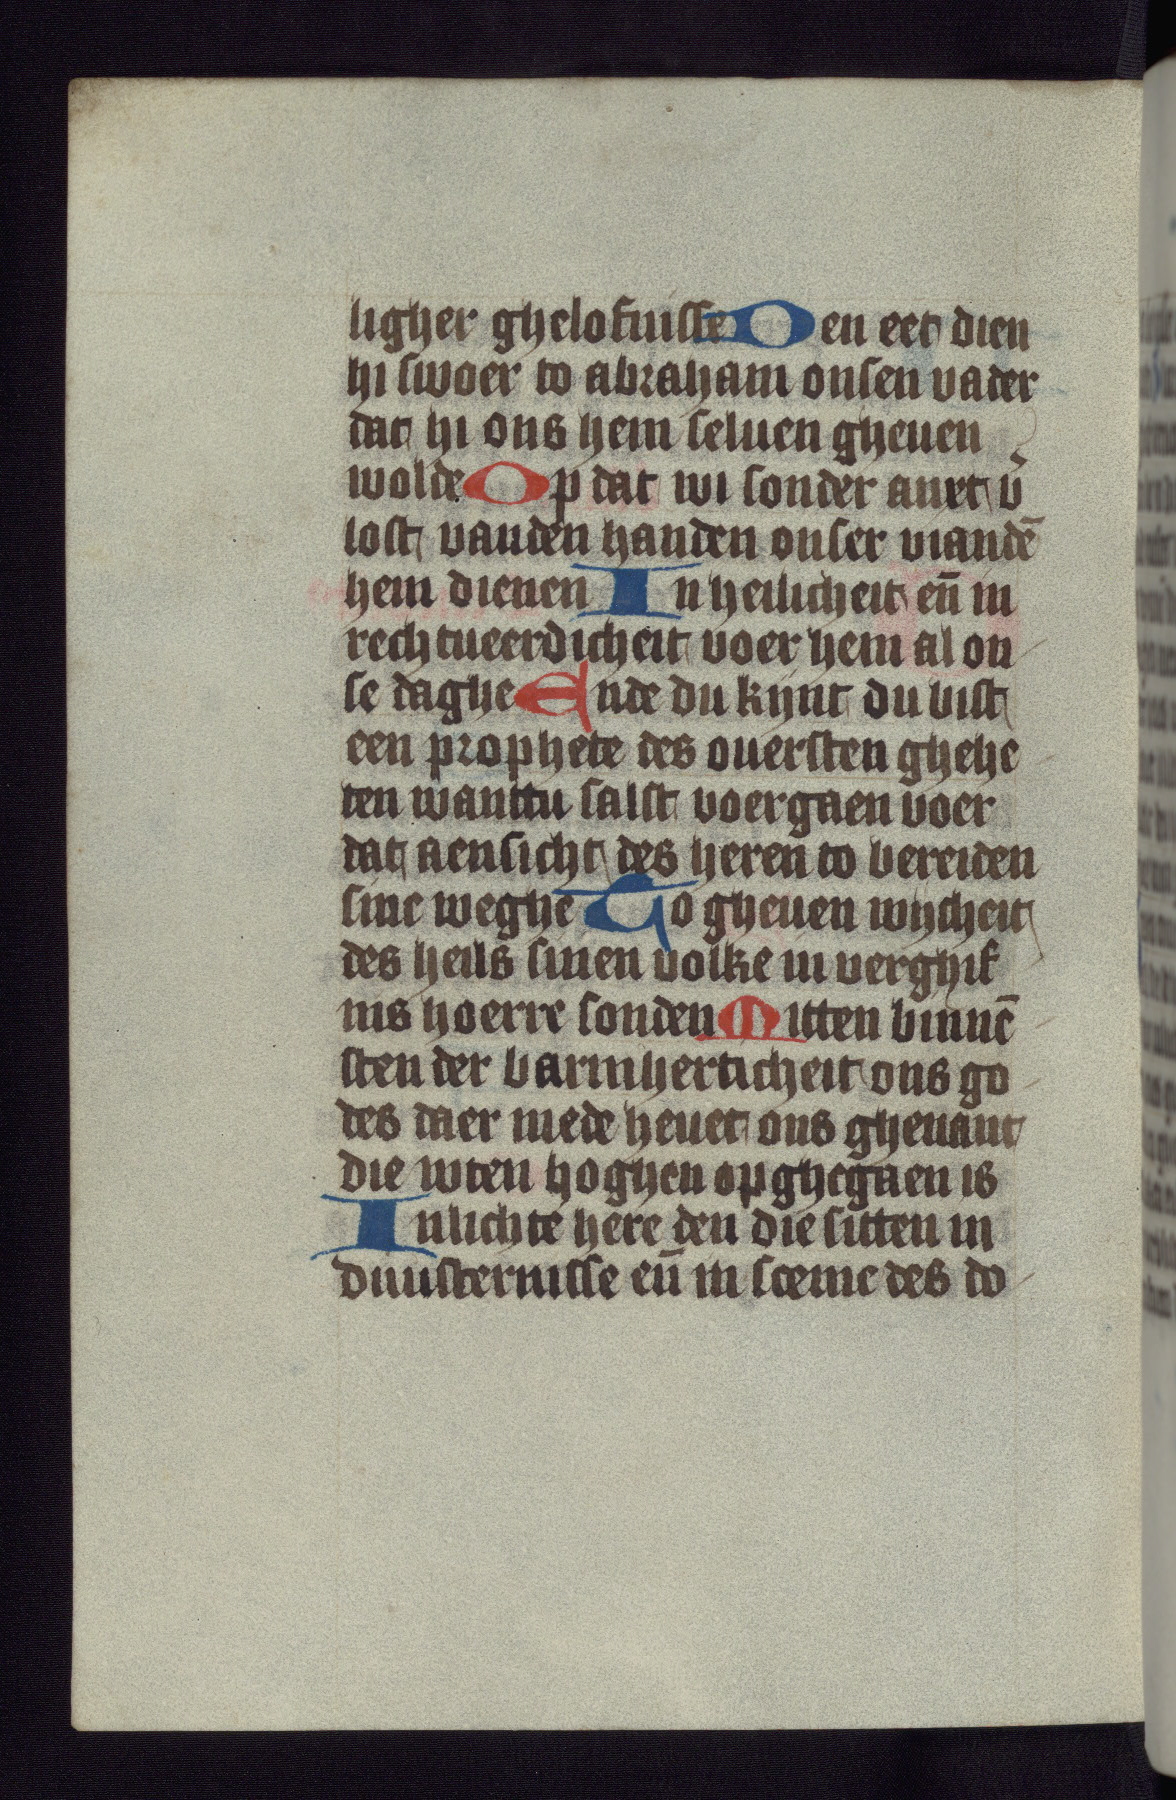 ligher ghelofnisse Den eet dien
hi swoer to abraham onsen vader
dat hi ons hem seluen gheuen
wolde Op dat wi sonder anxt v̄
lost vanden handen onser viandē
hem dienen In heilicheit eñ in
rechtueerdicheit voer hem al on
se daghe Ende du kijnt du bist
een prophete des ouersten ghehe
ten wanttu salst voergaen voer
dat aensicht des heren to bereiden
sine weghe To gheuen wijcheit
des heils sinen volke in verghif
nis hoerre sonden Mitten binnē
sten der barmherticheit ons go
des daer mede heuet ons gheuant
die wten hoghen opghegaen is
Inlichte here den die sitten in
duusternisse eñ in sceme des do